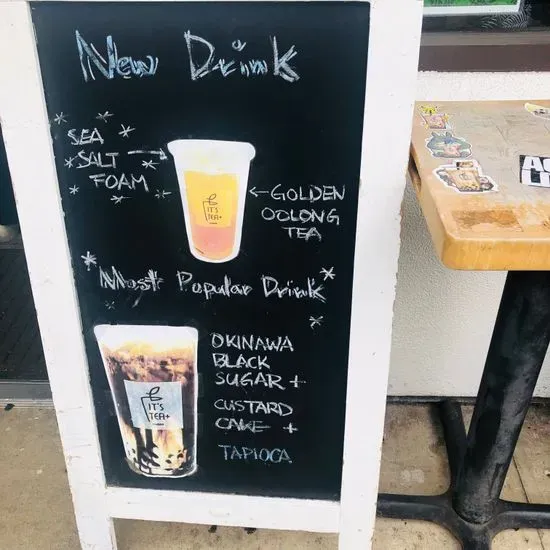 New Drink
SEA
SALT
FOAM
IT'S
TEA+
GOLDEN
OOLONG
TEA
Most Popular Drink
OKINAWA
BLACK
SUGAR +
CUSTARD
CAKE +
TAPIOCA
IT'S
TEA+